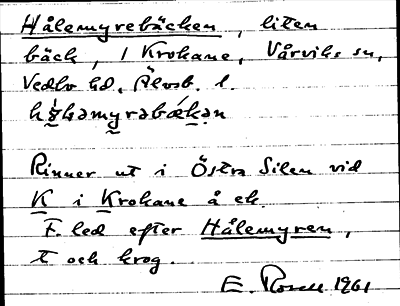 Hålemyrebäcken, liten
bäck, i Krokane, Vårviks sn,
Vedbo hd, Älvsb. l.
Rinner ut i Östra Silen vid
K i Krokane å ek.
F. led efter Hålemyren,
t och krog.
E. 1961